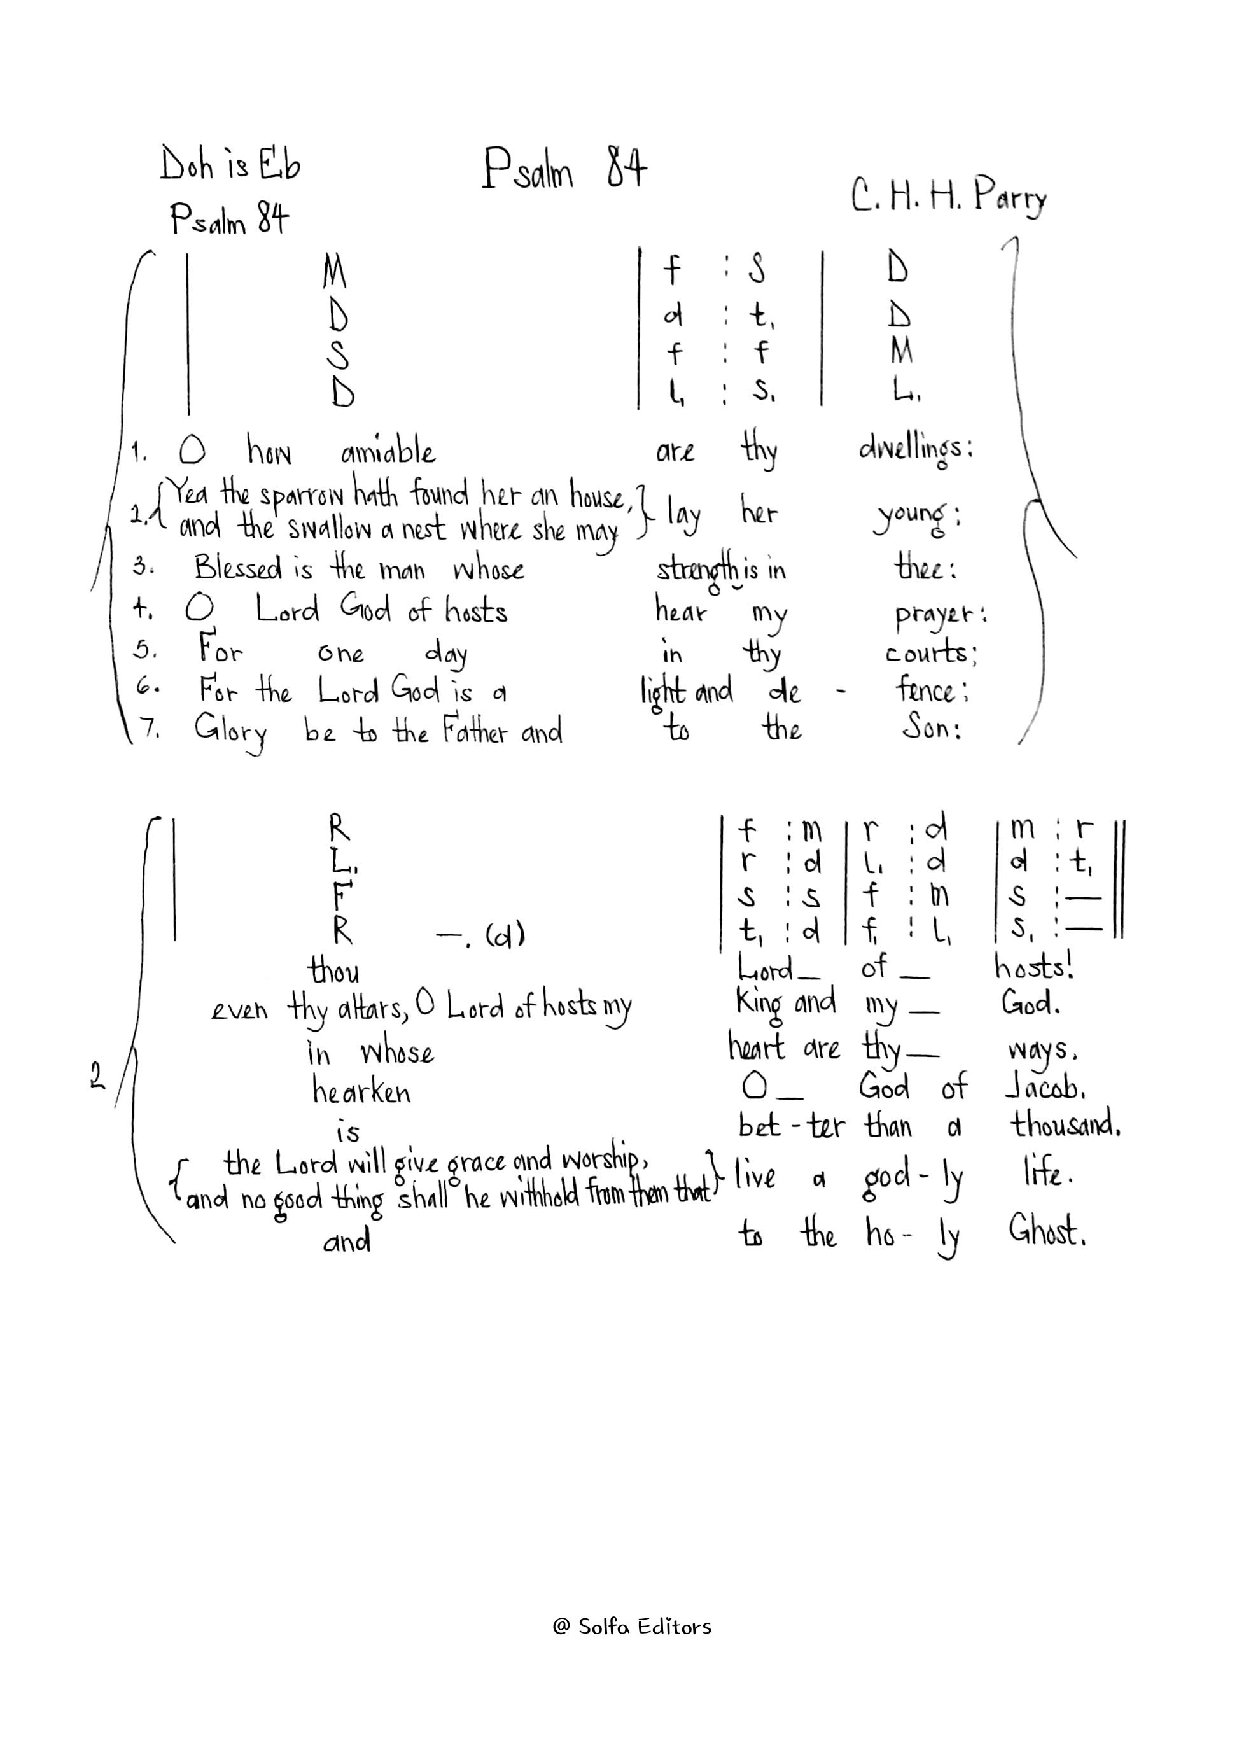 Doh is Eb
Psalm 84
C. H. H. Parry
Psalm 84
M | f : s | D
D | d : t, | D
S | f : f | M
D | l, : s, | L,
1. O how amiable are thy dwellings:
2. { Yea the sparrow hath found her an house,
and the swallow a nest where she may } lay her young;
3. Blessed is the man whose strength is in thee:
4. O Lord God of hosts hear my prayer:
5. For one day in thy courts;
6. For the Lord God is a light and de - fence:
7. Glory be to the Father and to the Son:
R | f : m | r : d | m : r ||
L, | r : d | l, : d | d : t, ||
F | s : s | f : m | s : — ||
R —. (d) | t, : d | f, : l, | s, : — ||
thou Lord _ of _ hosts!
even thy altars, O Lord of hosts my King and my _ God.
in whose heart are thy _ ways.
2
hearken O _ God of Jacob.
is bet - ter than a thousand.
{ the Lord will give grace and worship,
and no good thing shall he withhold from them that } live a god - ly life.
and to the ho - ly Ghost.
@ Solfa Editors